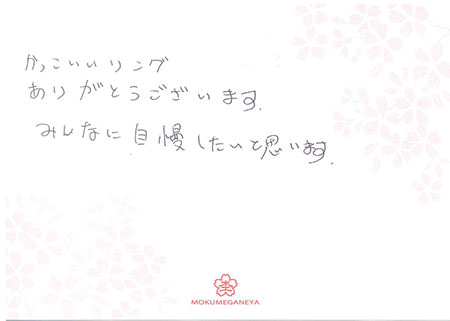 かっこいいリング
ありがとうございます.
みんなに自慢したいと思います.
MOKUMEGANEYA